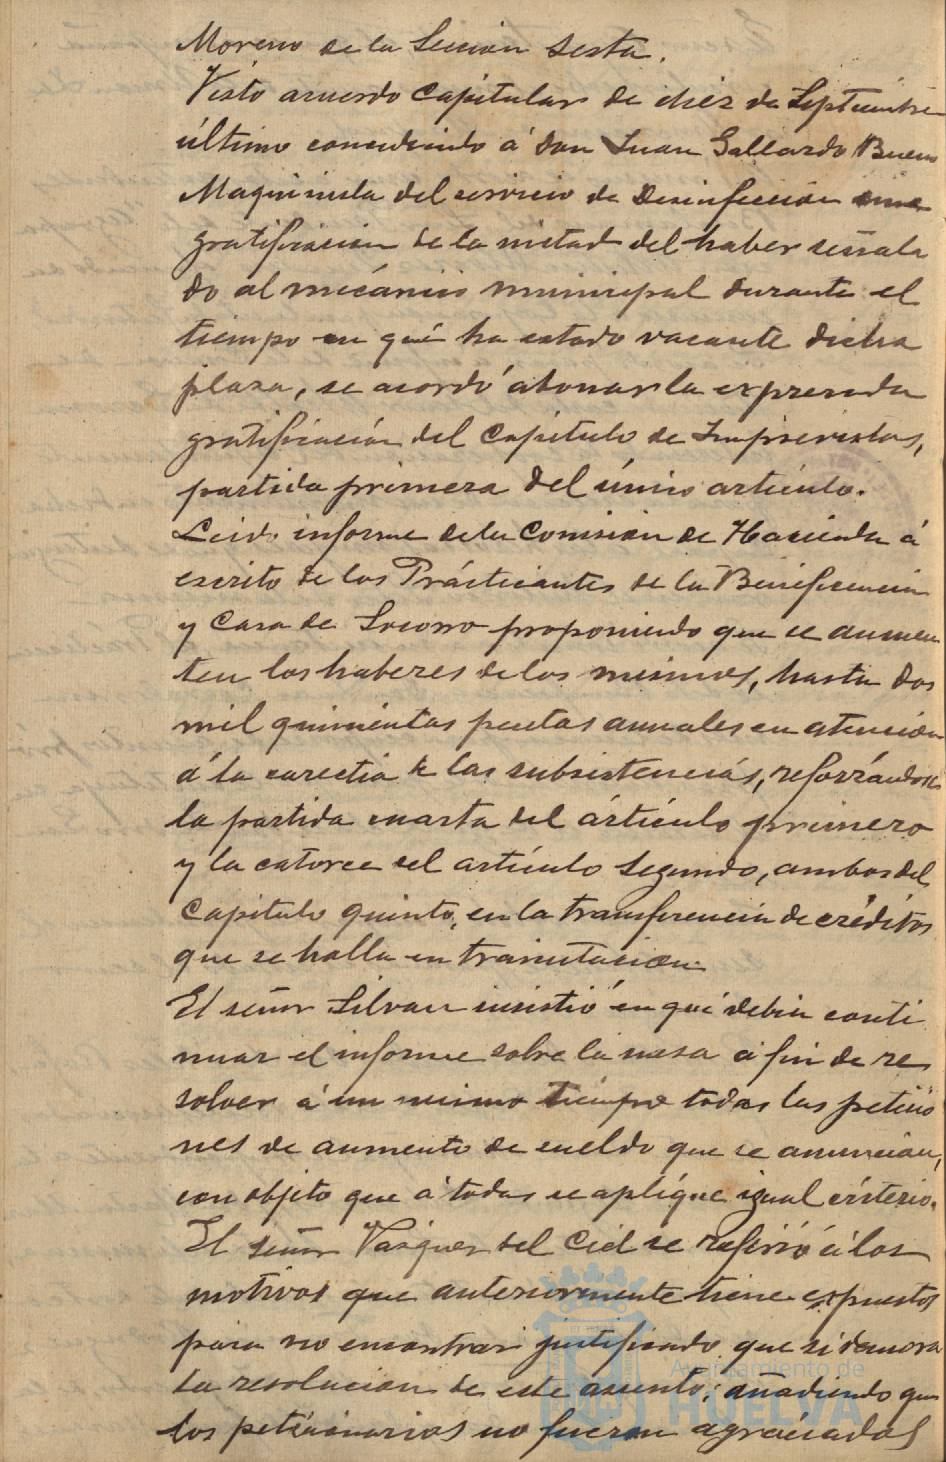 Moreno de la Sección Sesta.
Visto acuerdo Capitular de diez de Septiembre
último concediendo á don Juan Gallardo Bueno
Maquinista del servicio de Desinfección una
gratificacion de la mitad del haber señala
do al mecánico municipal durante el
tiempo en qué ha estado vacante dicha
plaza, se acordó abonar la expresada
gratificación del Capítulo de Imprevistos,
partida primera del único artículo.
Leido informe de la Comisión de Hacienda á
escrito de los Prácticantes de la Beneficencia
y Casa de Socorro proponiendo que se aumen
ten los haberes de los mismos, hasta dos
mil quinientas pesetas anuales en atención
á la carestia de las subsistencias, reforzándose
la partida cuarta del artículo primero
y la catorce del artículo Segundo, ambos del
Capitulo quinto, en la transferencia de créditos
que se halla en tramitacion.
El señor Silvan insistió en qué debia conti
nuar el informe sobre la mesa á fin de re
solver á un mismo tiempo todas las peticio
nes de aumento de sueldo que se anuncian,
con objeto que á todas se aplique igual criterio.
El señor Vasquez del Cid se refirió á los
motivos que anteriormente tiene expuestos
para no encontrar justificado que se demora
la resolucion de este asunto; añadiendo que
los peticionarios no fueron agraciados
Ayuntamiento de
HUELVA